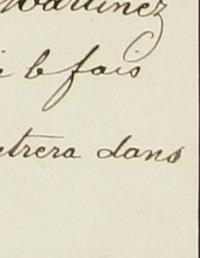 Martinez
i le fais
ntrera dans